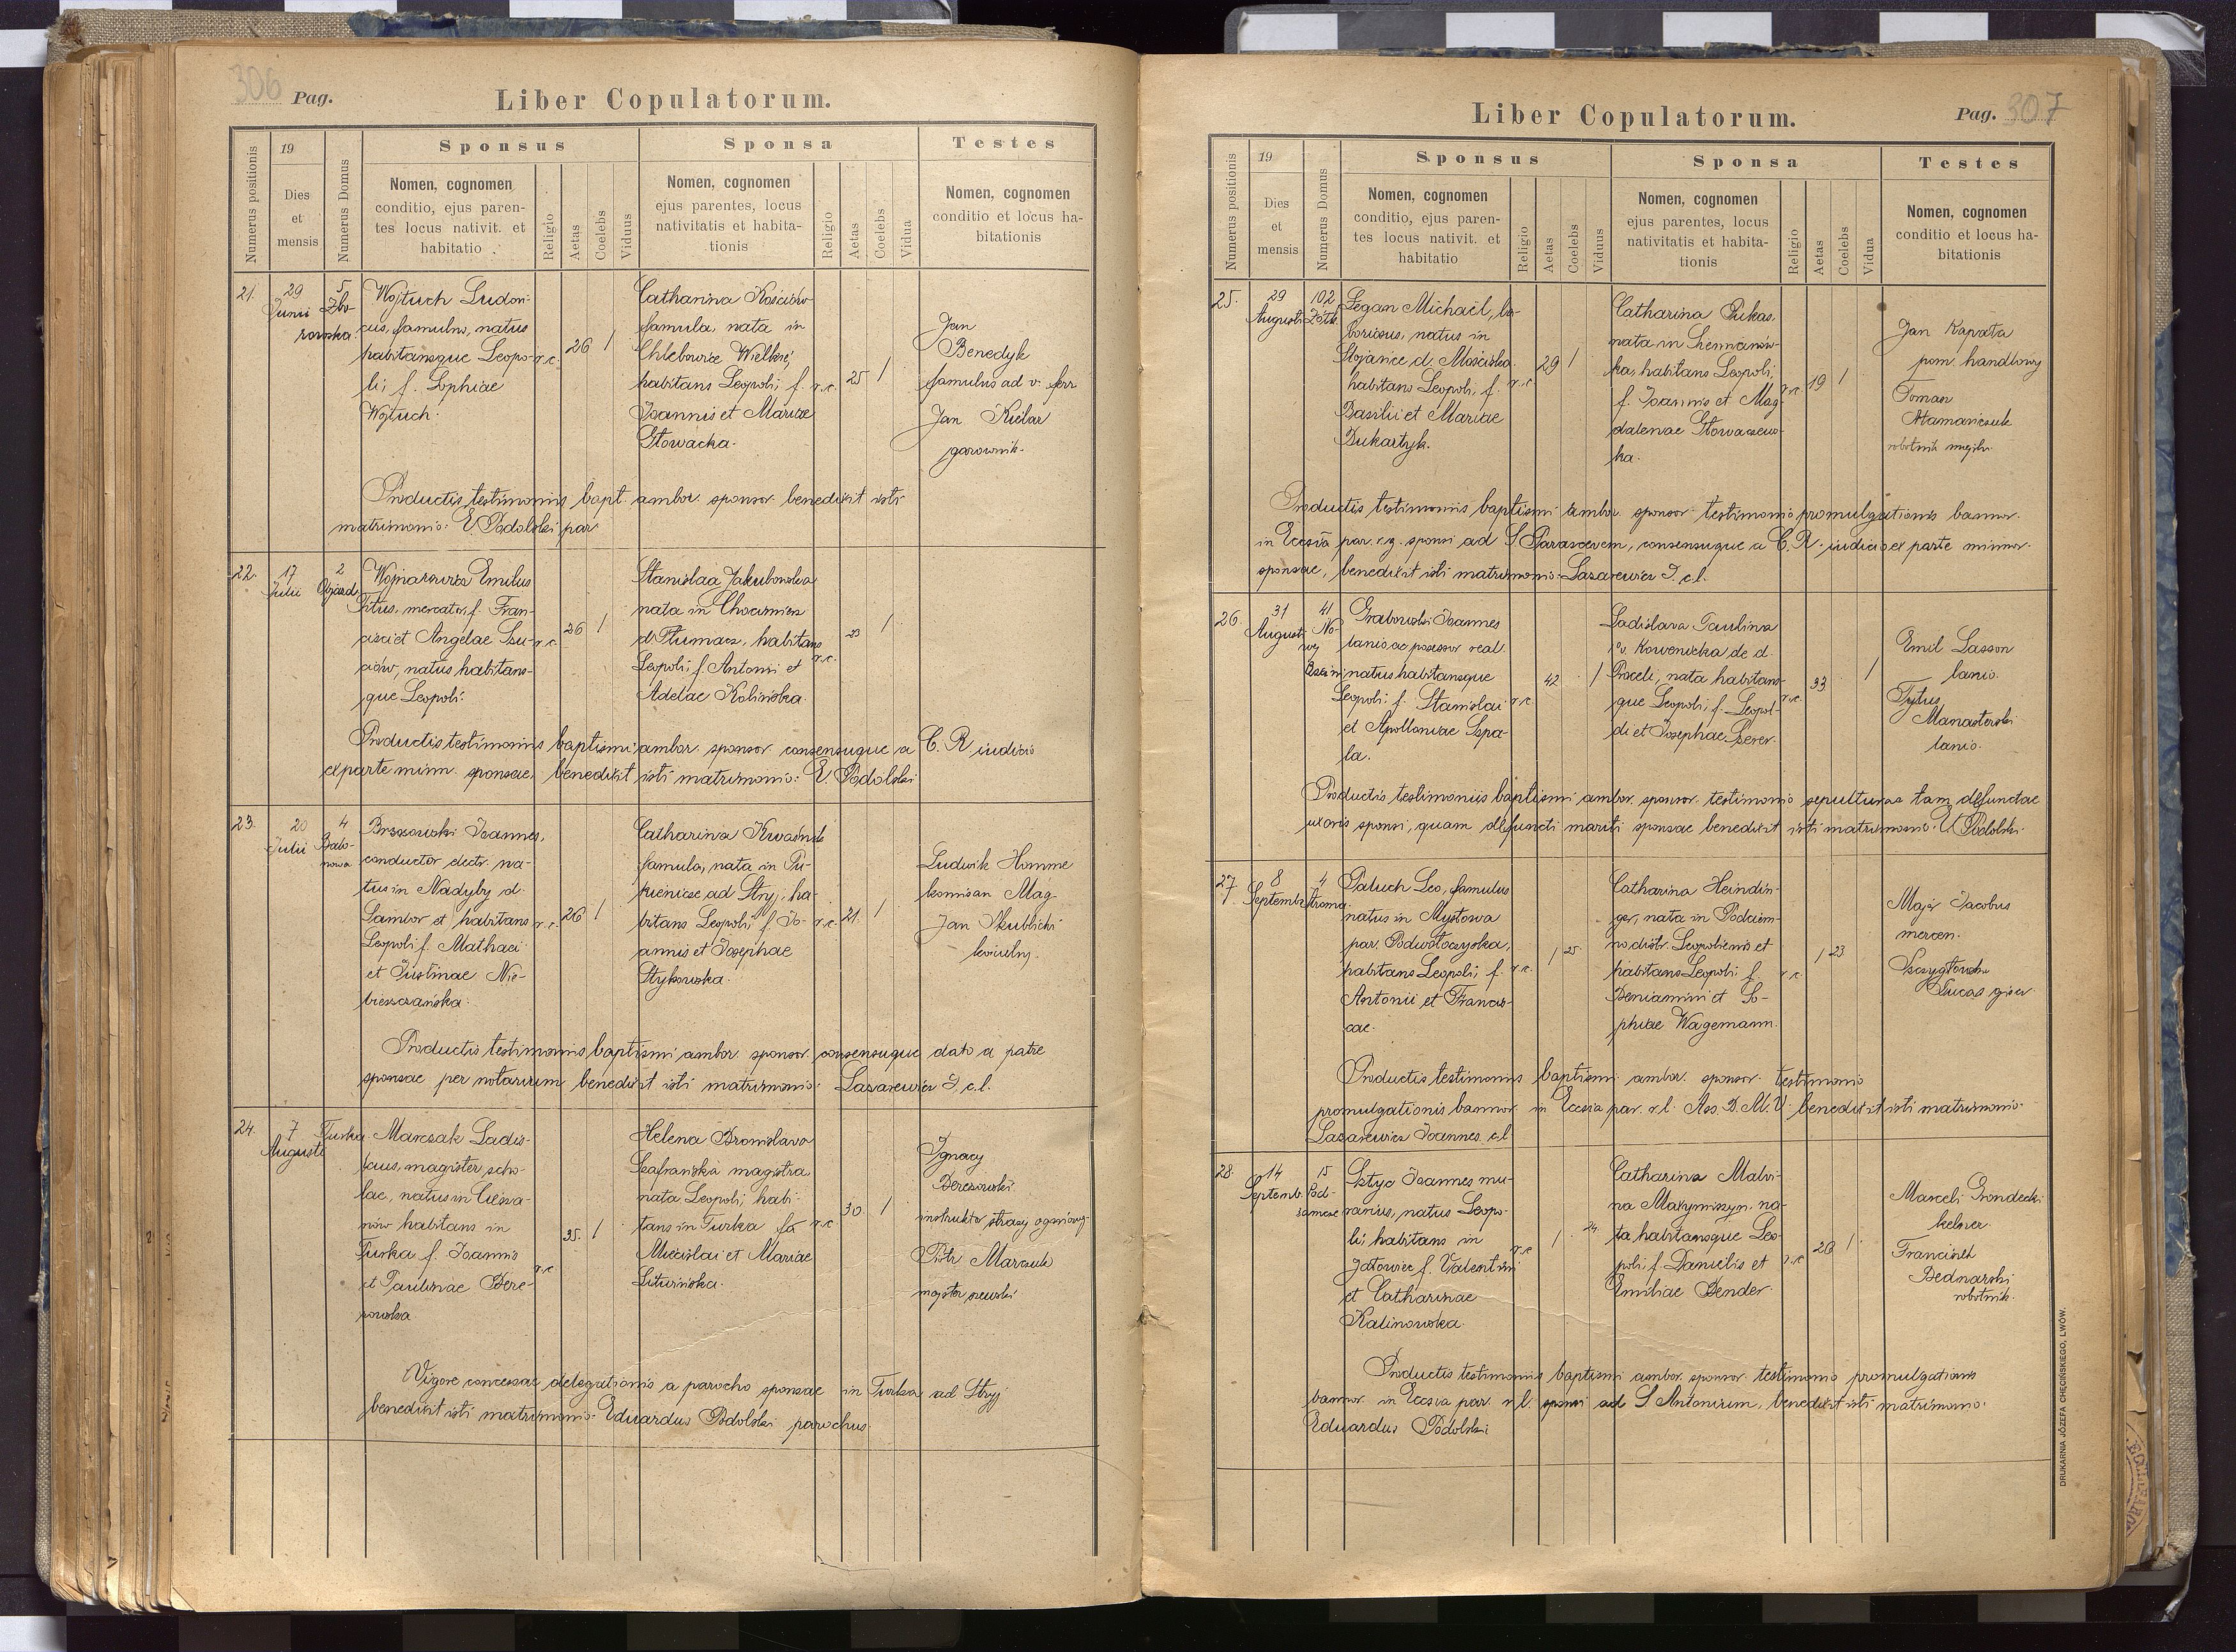 306 Pag.
Liber Copulatorum.
Numerus positionis
19
Dies
et
mensis
Numerus Domus
Sponsus
Nomen, cognomen
conditio, ejus paren-
tes locus nativit. et
habitatio
Religio
Aetas
Coelebs
Viduus
Sponsa
Nomen, cognomen
ejus parentes, locus
nativitatis et habita-
tionis
Religio
Aetas
Coelebs
Vidua
Testes
Nomen, cognomen
conditio et locus ha-
bitationis
21.
29
Junii
5
Zbo-
rowska
Wojtuch Ludovi-
cus, famulus, natus
habitansque Leopo-
li, f. Sophiae
Wojtuch.
r.c.
26
1
Catharina Kościów
famula, nata in
Chlebowice Wielkie,
habitans Leopoli, f.
Joannis et Mariae
Słowacka.
r.c.
25
1
Jan
Benedyk
famulus ad v. ferr
Jan Kielar
Productis testimoniis bapt. ambor. sponsor. benedixit isti
matrimonio: E. Podolski par.
22.
17
Julii
2
Objazd
Wojnarowicz Emilus
Titus, mercator, f. Fran-
cisci et Angelae Szu-
ców, natus habitans-
que Leopoli.
r.c.
26
1
Stanislaa Jakubowska
nata in Chocimierz
d. Tłumacz, habitans
Leopoli, f. Antonii et
Adelae Kolińska.
r.c.
23
1
Productis testimoniis baptismi ambor. sponsor consensuque a C. R. iudicio
ex parte minn. sponsae, benedixit isti matrimonio: E. Podolski
23.
20
Julii
4
Balo-
nowa
Brzozowski Joannes,
conductor electr. na-
tus in Nadyby d.
Sambor et habitans
Leopoli f. Mathaei
et Justinae Nie-
bieszczańska.
r.c.
26
1
Catharina Kwaśnik
famula, nata in Pu-
kienicze ad Stryj, ha-
bitans Leopoli, f. Jo-
annis et Josephae
Stykowska.
r.c.
21.
1
Ludwik Homme
komisarz Mag
Jan Skublicki
Productis testimoniis baptismi ambor. sponsor. consensuque dato a patre
sponsae per notarium benedixit isti matrimonio: Lazarewicz J. c.l.
24.
7
Augusti
Turka
Marczak Ladis-
laus, magister scho-
lae, natus in Ciesza-
nów habitans in
Turka f. Joannis
et Paulinae Bere-
zowska
r.c
35.
1
Helena Bronislava
Szafrańska magistra
nata Leopoli, habi-
tans in Turka fa
Miecislai et Mariae
Litwińska.
r.c
30.
1
Ignacy
Berezowski
instruktor straży ogniowej
Piotr Marczak
majster szewski
Vigore concessae delegationis a parocho sponsae in Turka ad Stryj
benedixit isti matrimonio: Eduardus Podolski parochus.
Liber Copulatorum.
Pag. 307
Numerus positionis
19
Dies
et
mensis
Numerus Domus
Sponsus
Nomen, cognomen
conditio, ejus paren-
tes locus nativit. et
habitatio
Religio
Aetas
Coelebs
Viduus
Sponsa
Nomen, cognomen
ejus parentes, locus
nativitatis et habita-
tionis
Religio
Aetas
Coelebs
Vidua
Testes
Nomen, cognomen
conditio et locus ha-
bitationis
25.
29
Augusti
102
Żółk.
Legan Michael, la-
boriosus, natus in
Stojańce d. Mościska
habitans Leopoli, f.
Basilii et Mariae
Dukartyk.
r.c
29
1
Catharina Pukas,
nata in Hermanów-
ka, habitans Leopoli,
f. Joannis et Mag-
dalenae Słowaczews-
ka.
r.c
19
1
Jan Kapała
pom. handlowy
Tomasz
Atamańczuk
robotnik miejski.
Productis testimoniis baptismi ambor. sponsor. testimonio promulgationis bannor.
in Eccsia par. r.g. sponsi ad S. Parascevem, consensuque a C. R. iudicio ex parte minor.
sponsae, benedixit isti matrimonio: Lazarewicz J. c.l.
26.
31
Augusti
41
No-
wy
Grabowski Joannes
lanio ac posessor real.
natus habitansque
Leopoli f. Stanislai
et Apolloniae Szpa-
la.
r.c
42
1
Ladislava Paulina
1o v. Kowenicka de d.
Proceli, nata habitans-
que Leopoli, f. Leopol-
di et Josephae Berer.
r.c
33
1
Emil Lasson
lanio.
Tytus
Manasterski
lanio.
Productis testimoniis baptismi ambor. sponsor. testimonio sepulturae tam defunctae
uxoris sponsi, quam defuncti mariti sponsae benedixit isti matrimonio: E. Podolski.
27.
8
Septemb.
4
Stroma
Paluch Leo, famulus
natus in Mysłowa
par. Podwołoczyska,
habitans Leopoli, f.
Antonii et Francis-
cae.
r.c.
1
25
Catharina Heindin-
ger, nata in Podciem-
no distr. Leopoliensis et
habitans Leopoli, f.
Beniamini et So-
phiae Wagemann.
r.c.
1
23
Majer Jacobus
mercen.
Szczygłowski
Lucas giser
Productis testimoniis baptismi ambor. sponsor. testimonio
promulgationis bannor. in Eccsia par. r.l. Ass. B. M. V. benedixit isti matrimonio.
Lazarewicz Joannes c.l
28.
14
Septemb.
15
Pod-
zamcze
Sztyc Joannes mu-
rarius, natus Leopo-
li, habitans in
Jałowiec f. Valentini
et Catharinae
Kalinowska.
r.c
1
24.
Catharina Malvi-
na Maxymiszyn, na-
ta habitansque Leo-
poli f. Danielis et
Emiliae Bender.
r.c
26
1
Marceli Grondecki
kelner.
Franciszek
Bednarski
robotnik.
Productis testimoniis baptismi ambor. sponsor. testimonio promulgationis
bannor. in Eccsia par. r.l. sponsi ad S. Antonium, benedixit isti matrimonio.
Eduardus Podolski
DRUKARNIA JÓZEFA CHĘCIŃSKIEGO, LWÓW.